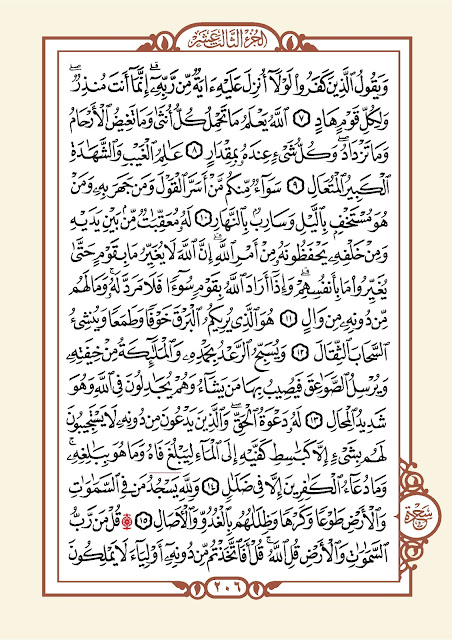 الجزء الثالث عشر
وَيَقُولُ الَّذِينَ كَفَرُوا لَوْلَا أُنزِلَ عَلَيْهِ ءَايَةٌ مِّن رَّبِّهِۦٓ ۗ إِنَّمَآ أَنتَ مُنذِرٌ ۖ
وَلِكُلِّ قَوْمٍ هَادٍ ٧ اللَّهُ يَعْلَمُ مَا تَحْمِلُ كُلُّ أُنثَىٰ وَمَا تَغِيضُ الْأَرْحَامُ
وَمَا تَزْدَادُ ۖ وَكُلُّ شَىْءٍ عِندَهُۥ بِمِقْدَارٍ ٨ عَالِمُ الْغَيْبِ وَالشَّهَادَةِ
الْكَبِيرُ الْمُتَعَالِ ٩ سَوَآءٌ مِّنكُم مَّنْ أَسَرَّ الْقَوْلَ وَمَن جَهَرَ بِهِۦ وَمَنْ
هُوَ مُسْتَخْفٍۭ بِالَّيْلِ وَسَارِبٌۢ بِالنَّهَارِ ١٠ لَهُۥ مُعَقِّبَاتٌ مِّنۢ بَيْنِ يَدَيْهِ
وَمِنْ خَلْفِهِۦ يَحْفَظُونَهُۥ مِنْ أَمْرِ اللَّهِ ۗ إِنَّ اللَّهَ لَا يُغَيِّرُ مَا بِقَوْمٍ حَتَّىٰ
يُغَيِّرُوا مَا بِأَنفُسِهِمْ ۗ وَإِذَآ أَرَادَ اللَّهُ بِقَوْمٍ سُوٓءًا فَلَا مَرَدَّ لَهُۥ ۚ وَمَا لَهُم
مِّن دُونِهِۦ مِن وَالٍ ١١ هُوَ الَّذِى يُرِيكُمُ الْبَرْقَ خَوْفًا وَطَمَعًا وَيُنشِئُ
السَّحَابَ الثِّقَالَ ١٢ وَيُسَبِّحُ الرَّعْدُ بِحَمْدِهِۦ وَالْمَلَٰٓئِكَةُ مِنْ خِيفَتِهِۦ
وَيُرْسِلُ الصَّوَاعِقَ فَيُصِيبُ بِهَا مَن يَشَآءُ وَهُمْ يُجَادِلُونَ فِى اللَّهِ وَهُوَ
شَدِيدُ الْمِحَالِ ١٣ لَهُۥ دَعْوَةُ الْحَقِّ ۖ وَالَّذِينَ يَدْعُونَ مِن دُونِهِۦ لَا يَسْتَجِيبُونَ
لَهُم بِشَىْءٍ إِلَّا كَبَاسِطِ كَفَّيْهِ إِلَى الْمَآءِ لِيَبْلُغَ فَاهُ وَمَا هُوَ بِبَالِغِهِۦ ۚ
وَمَا دُعَآءُ الْكَافِرِينَ إِلَّا فِى ضَلَالٍ ١٤ وَلِلَّهِ يَسْجُدُ مَن فِى السَّمَاوَاتِ
وَالْأَرْضِ طَوْعًا وَكَرْهًا وَظِلَالُهُم بِالْغُدُوِّ وَالْآصَالِ ۩ ١٥ قُلْ مَن رَّبُّ
السَّمَاوَاتِ وَالْأَرْضِ قُلِ اللَّهُ ۚ قُلْ أَفَاتَّخَذْتُم مِّن دُونِهِۦٓ أَوْلِيَآءَ لَا يَمْلِكُونَ
سجدة
٢٠٦